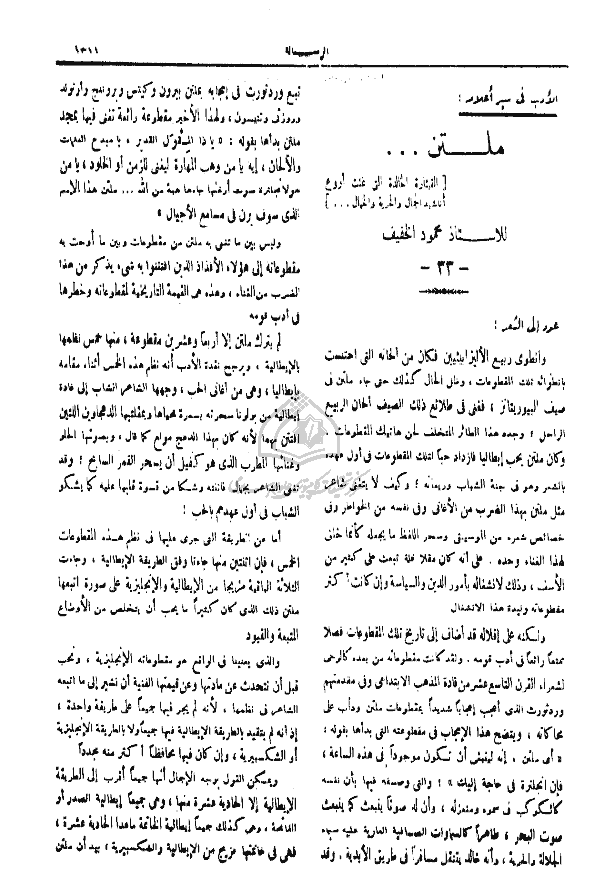 الرسالة
١٣١١
الأدب فى سير أعلامه :
ملتن ...
[ القيثارة الخالدة التى غنت أروع
أناشيد الجمال والحرية والخيال ... ]
للأستاذ محمود الخفيف
— ٣٣ —
عود إلى الشعر :
وانطوى ربيع الأليزابيثيين فكان من ألحانه التى احتبست
بانطوائه تلك المقطوعات ، وظل الحال كذلك حتى جاء ملتن فى
صيف البيوريتانز ، فغنى فى طلائع ذلك الصيف ألحان الربيع
الراحل ؛ وجده هذا الطائر المتخلف لحن هاتيك المقطوعات .
وكان ملتن يحب إيطاليا فازداد حباً لتلك المقطوعات فى أول عهده
بالشعر وهو فى جنة الشباب وريعانه ؛ وكيف لا يتغنى شاعر
مثل ملتن بهذا الضرب من الأغانى وفى نفسه من الخواطر وفى
خصائص شعره من الموسيقى وسحر اللفظ ما يجعله كأنما خلق
لهذا الغناء وحده . على أنه كان مقلا قلة تبعث على كثير من
الأسف ، وذلك لانشغاله بأمور الدين والسياسة وإن كانت أكثر
مقطوعاته وليدة هذا الانشغال
ولكنه على إقلاله قد أضاف إلى تاريخ تلك المقطوعات فصلا
ممتعاً رائعاً فى أدب قومه . ولقد كانت مقطوعاته من بعده كالوحى
لشعراء القرن التاسع عشر من قادة المذهب الابتداعى وفى مقدمتهم
وردثورت الذى أعجب إعجاباً شديداً بمقطوعات ملتن ودأب على
محاكاته ، ويتضح هذا الإعجاب فى مقطوعته التى بدأها بقوله :
« أى ملتن . إنه لينبغى أن تكون موجوداً فى هذه الساعة ،
فإن إنجلترة فى حاجة إليك » ؛ والتى وصفه فيها بأن نفسه
كالكوكب فى سموه ومنعزله ، وأن له صوتاً ينبعث كما ينبعث
صوت البحر ، طاهراً كالسماوات الصافية العارية عليه سيماء
الجلالة والحرية ، وأنه خالد يتنقل مسافراً فى طريق الأبدية . وقد
تبع وردثورت فى إعجابه بملتن بيرون وكيتس وبروننج وأرنولد
وروزتى وتنيسون ، ولهذا الأخير مقطوعة رائعة تغنى فيها بمجد
ملتن بدأها بقوله : « يا ذا الفم القدير ، يا مبدع النغمات
والألحان ، إيه يا من وهب المهارة ليغنى للزمن أو الخلود ، يا من
صوت أرغنها جاءها هبة من الله ... ملتن هذا الاسم
الذى سوف يرن فى مسامع الأجيال »
وليس بين ما تغنى به ملتن من مقطوعات وبين ما أوحت به
مقطوعاته إلى هؤلاء الأفذاذ الذين افتتنوا به شىء يذكر من هذا
الضرب من الغناء ، وهذه هى القيمة التاريخية لمقطوعاته وخطرها
فى أدب قومه
لم يترك ملتن إلا أربعاً وعشرين مقطوعة ، منها خمس نظمها
بالإيطالية ، ويرجح نقدة الأدب أنه نظم هذه الخمس أثناء مقامه
بإيطاليا ، وهى من أغانى الحب ، وجهها الشاعر الشاب إلى غادة
إيطالية من بولونا سحرته بسمرة محياها وبمقلتيها الدعجاوين اللتين
افتتن بهما لأنه كان بهذا الدعج مولع كما قال ، وبصوتها الحلو
وغنائها المطرب الذى هو كفيل أن يسحر القمر السابح ؛ وقد
تغنى الشاعر بجمال فاتنته وشكا من قسوة قلبها عليه كما يشكو
الشباب فى أول عهدهم بالحب !
أما عن الطريقة التى جرى عليها فى نظم هذه المقطوعات
الخمس ، فإن اثنتين منها جاءتا وفق الطريقة الإيطالية ، وجاءت
الثلاثة الباقية مزيجاً من الإيطالية والإنجليزية على صورة اتبعها
ملتن ذلك الذى كان كثيراً ما يحب أن يتخلص من الأوضاع
المتبعة والقيود
والذى يعنينا فى الواقع هو مقطوعاته الإنجليزية ، ونحب
قبل أن نتحدث عن مادتها وعن قيمتها الفنية أن نشير إلى ما اتبعه
الشاعر فى نظمها ، لأنه لم يجر فيها جميعاً على طريقة واحدة ،
إذ أنه لم يتقيد بالطريقة الإيطالية فيها جميعاً ولا بالطريقة الإنجليزية
أو الشكسبيرية ، وإن كان فيها محافظاً أكثر منه مجدداً
ويمكن القول بوجه الإجمال أنها جميعاً أقرب إلى الطريقة
الإيطالية إلا الحادية عشرة منها ، وهى جميعاً إيطالية الصدر أو
الفاتحة ، وهى كذلك جميعاً إيطالية الخاتمة ماعدا الحادية عشرة ،
فهى فى خاتمتها مزيج من الإيطالية والشكسبيرية ، بيد أن ملتن